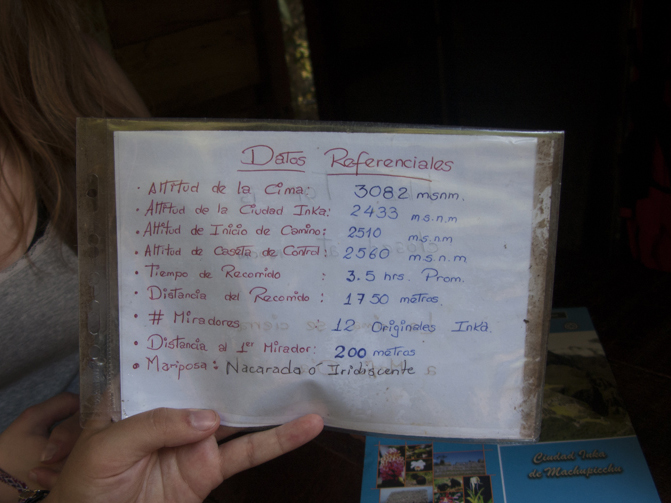 Datos Referenciales
· Altitud de la Cima: 3082 msnm.
· Altitud de la Ciudad Inka: 2433 m.s.n.m
· Altitud de Inicio de Camino: 2510 m.s.n.m
· Altitud de Caseta de Control: 2560 m.s.n.m
· Tiempo de Recorrido : 3.5 hrs. Prom.
· Distancia del Recorrido : 1750 metros
· # Miradores : 12 Originales Inka
· Distancia al 1er Mirador: 200 metros
· Mariposa: Nacarada o Iridiscente
Ciudad Inka
de Machupicchu